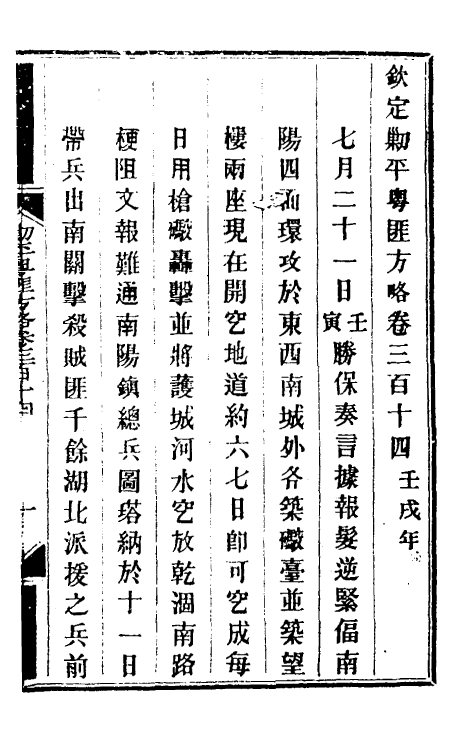 欽定勦平粵匪方略卷三百十四壬戌年
七月二十一日壬寅勝保奏言據報髮逆緊偪南
陽四面環攻於東西南城外各築礮臺並築望
樓兩座現在開空地道約六七日卽可空成每
日用槍礮轟擊並將護城河水空放乾涸南路
梗阻文報難通南陽鎮總兵圖塔納於十一日
帶兵出南關擊殺賊匪千餘湖北派援之兵前